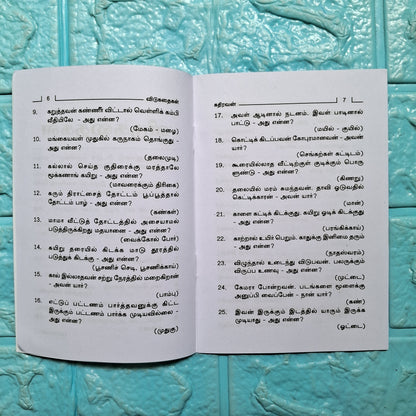 6 விடுகதைகள்
9. கறுத்தவன் கண்ணீர் விட்டால் வெள்ளிக் கம்பி
வீதியிலே - அது என்ன?
(மேகம் - மழை)
10. மங்கையவள் முதுகில் கருநாகம் தொங்குது -
அது என்ன?
(தலைமுடி)
11. கல்லால் செய்த குதிரைக்கு மரத்தாலே
மூக்கணாங் கயிறு - அது என்ன?
(மாவரைக்கும் திரிகை)
12. கரும் திராட்சைத் தோட்டம் பூப்பூத்தால்
தோட்டம் பாழ் - அது என்ன?
(கண்கள்)
13. மாமா வீட்டுத் தோட்டத்தில் அசையாமல்
படுத்திருக்கிறது மதயானை - அது என்ன?
(வைக்கோல் போர்)
14. கயிறு தரையில் கிடக்க மாடு தூரத்தில்
படுத்துக் கிடக்கு - அது என்ன?
(பூசணிச் செடி, பூசணிக்காய்)
15. கால் இல்லாதவன் சற்று நேரத்தில் மறைகிறான்
- அவன் யார்?
(பாம்பு)
16. எட்டுப் பட்டணம் பார்த்தவனுக்கு கிட்ட
இருக்கும் பட்டணம் பார்க்க முடியவில்லை -
அது என்ன?
(முதுகு)
கதிரவன் 7
17. அவள் ஆடினால் நடனம். இவள் பாடினால்
பாட்டு - அது என்ன?
(மயில் - குயில்)
18. கொட்டிக் கிடப்பவன் கோபுரமானவன் - அவன்
யார்?
(செங்கற்கள் கட்டிடம்)
19. கூரையில்லாத வீட்டிற்குள் குடிக்கும் பொரு
ளுண்டு - அது என்ன?
(கிணறு)
20. தலையில் மரம் சுமந்தவன். தாவி ஓடுவதில்
கெட்டிக்காரன் - அவன் யார்?
(மான்)
21. காளை கட்டிக் கிடக்குது. கயிறு ஓடிக் கிடக்குது
- அது என்ன?
(பரங்கிக்காய்)
22. காற்றால் உயிர் பெறும். காதுக்கு இனிமை தரும்
- அது என்ன?
(நாதஸ்வரம்)
23. விழுந்தால் உடைந்து விடுபவன். பலருக்கும்
விருப்ப உணவு - அது என்ன?
(முட்டை)
24. கேமரா போன்றவன். படங்களை மூளைக்கு
அனுப்பி வைப்பேன் - நான் யார்?
(கண்)
25. இவன் இருக்கும் இடத்தில் யாரும் இருக்க
முடியாது - அது என்ன?
(ஓட்டை)